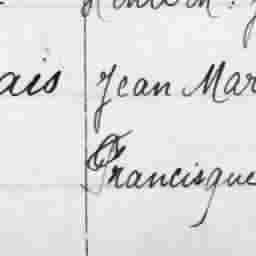 ais Jean Mar
Francisque